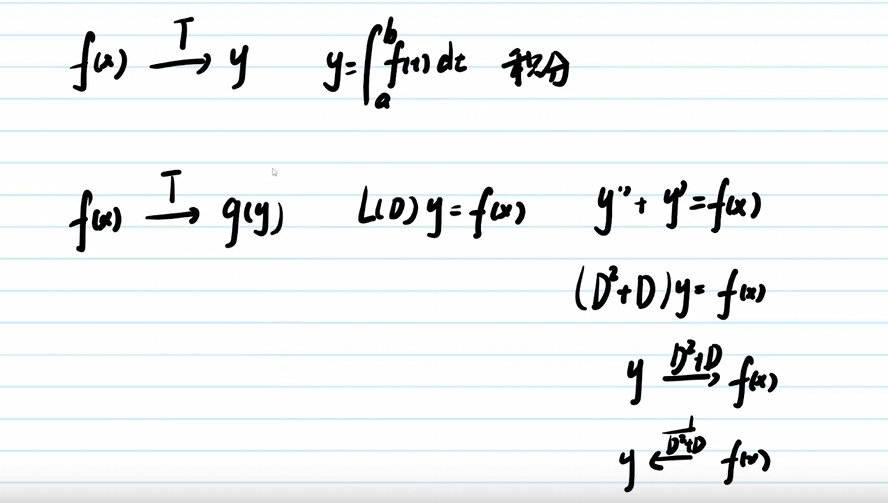 f(x) \xrightarrow{T} y y = \int_a^b f(t) dt 积分
f(x) \xrightarrow{T} g(y) L(D) y = f(x) y'' + y' = f(x)
(D^2 + D) y = f(x)
y \xrightarrow{D^2+D} f(x)
y \xleftarrow{\frac{1}{D^2+D}} f(x)